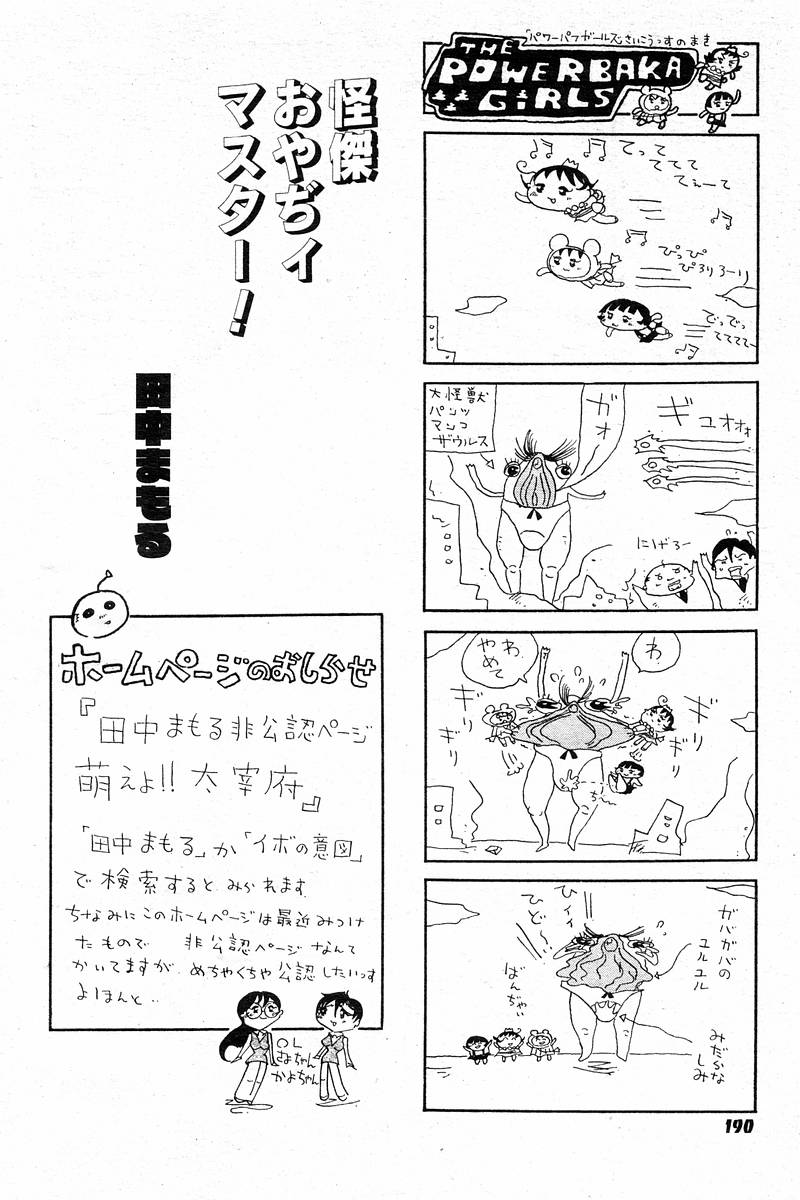 「パワーパフガールズ」さいこうっすのまき
THE
POWERBAKA
GIRLS
てって
てててて
てぇーて
ぴっぴ
ぴろりろーり
でっでっ
ててててー
ギュオオォ
ガォ
大怪獣
パンツ
マンコ
ザウルス
にげろー
わ、
わ
やめて
ギリ
ギリ
ギリ
ギリ
ち〜
ガバガバの
ユルユル
みだらな
しみ
ひィィ
ひど〜!
ばんちゃい
190
怪傑
おやぢィ
マスター!
田中まもる
ホームページのおしらせ
『田中まもる非公認ページ
萌えよ!!太宰府』
「田中まもる」か「イボの意図」
で検索すると、みられます
ちなみにこのホームページは最近みつけ
たもので 非公認ページなんて
かいてますが、めちゃくちゃ公認したいっす
よほんと..
OL
かよちゃん